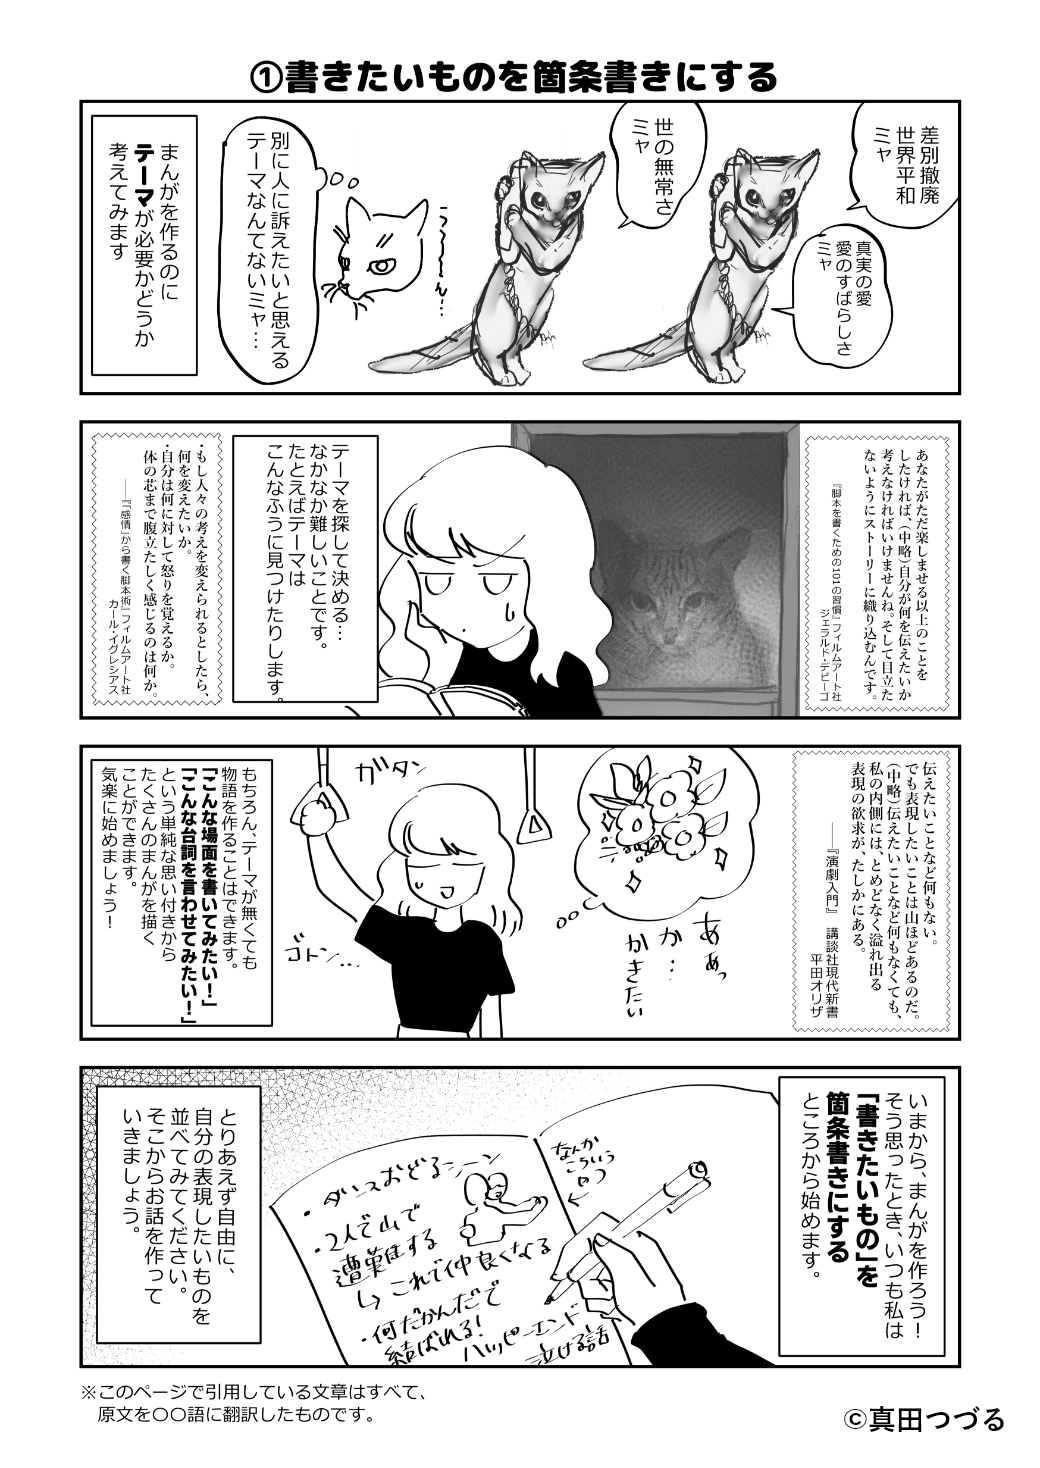 ①書きたいものを箇条書きにする
差別撤廃
世界平和
ミャ
真実の愛
愛のすばらしさ
ミャ
世の無常さ
ミャ
う〜〜〜ん…
別に人に訴えたいと思える
テーマなんてないミャ…
まんがを作るのに
テーマが必要かどうか
考えてみます
あなたがただ楽しませる以上のことを
したければ、(中略)自分が何を伝えたいか
考えなければいけませんね。そして目立た
ないようにストーリーに織り込むんです。
『脚本を書くための101の習慣』フィルムアート社
ジェラルド・デピーゴ
テーマを探して決める…
なかなか難しいことです。
たとえばテーマは
こんなふうに見つけたりします。
・もし人々の考えを変えられるとしたら、
何を変えたいか。
・自分は何に対して怒りを覚えるか。
体の芯まで腹立たしく感じるのは何か。
──『「感情」から書く脚本術』フィルムアート社
カール・イグレシアス
伝えたいことなど何もない。
でも表現したいことは山ほどあるのだ。
(中略)伝えたいことなど何もなくても、
私の内側には、とめどなく溢れ出る
表現の欲求が、たしかにある。
──『演劇入門』 講談社現代新書
平田オリザ
ああっ
か…
かきたい
ガタン
ゴトン…
もちろん、テーマが無くても
物語を作ることはできます。
「こんな場面を書いてみたい!」
「こんな台詞を言わせてみたい!」
という単純な思い付きから
たくさんのまんがを描く
ことができます。
気楽に始めましょう!
いまから、まんがを作ろう!
そう思ったとき、いつも私は
「書きたいもの」を
箇条書きにする
ところから始めます。
なんか
こういう
・ダンスおどるシーン
・2人で山で
遭難する
↳これで仲良くなる
・何だかんだで
結ばれる!
ハッピーエンド
泣ける話
とりあえず自由に、
自分の表現したいものを
並べてみてください。
そこからお話を作って
いきましょう。
※このページで引用している文章はすべて、
原文を〇〇語に翻訳したものです。
©真田つづる